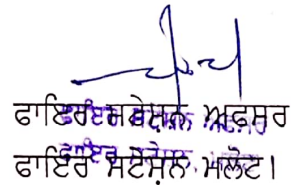 ਫਾਇਰ ਸਟੇਸ਼ਨ ਅਫਸਰ
ਫਾਇਰ ਸਟੇਸ਼ਨ ਮਲੋਟ।